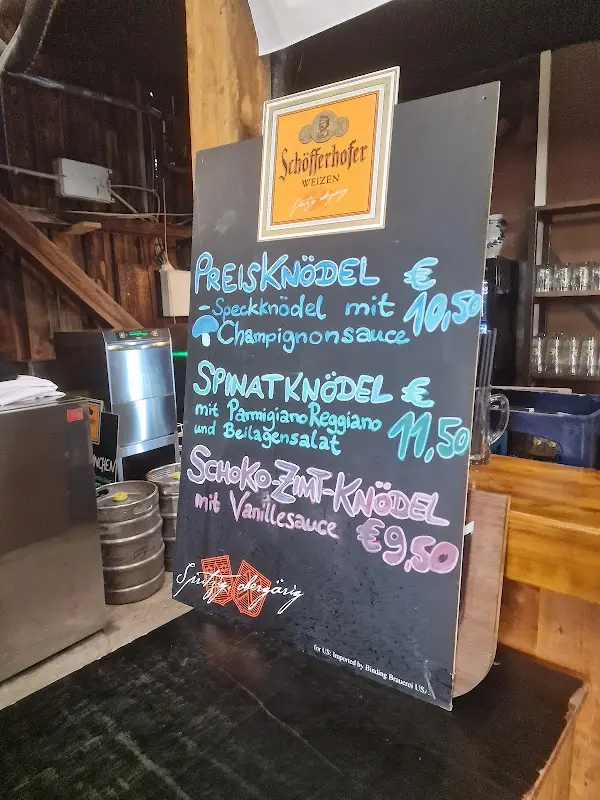 Schöfferhofer
WEIZEN
PREISKNÖDEL €
- Speckknödel mit 10,50
Champignonsauce
SPINATKNÖDEL €
mit Parmigiano Reggiano
und Beilagensalat 11,50
SCHOKO-ZIMT-KNÖDEL
mit Vanillesauce €9,50
Spritzig obergärig
for US: Imported by Binding Brauerei USA